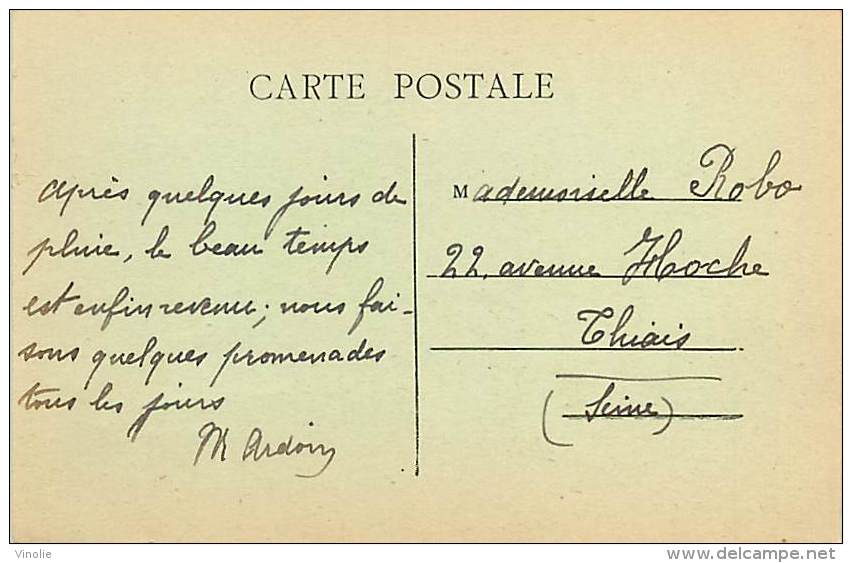 CARTE POSTALE
après quelques jours de
pluie, le beau temps
est enfin revenu; nous fai-
sons quelques promenades
tous les jours
M Ardoin
Mademoiselle Robo
22, avenue Hoche
Thiais
(Seine)
Vinolie
www.delcampe.net